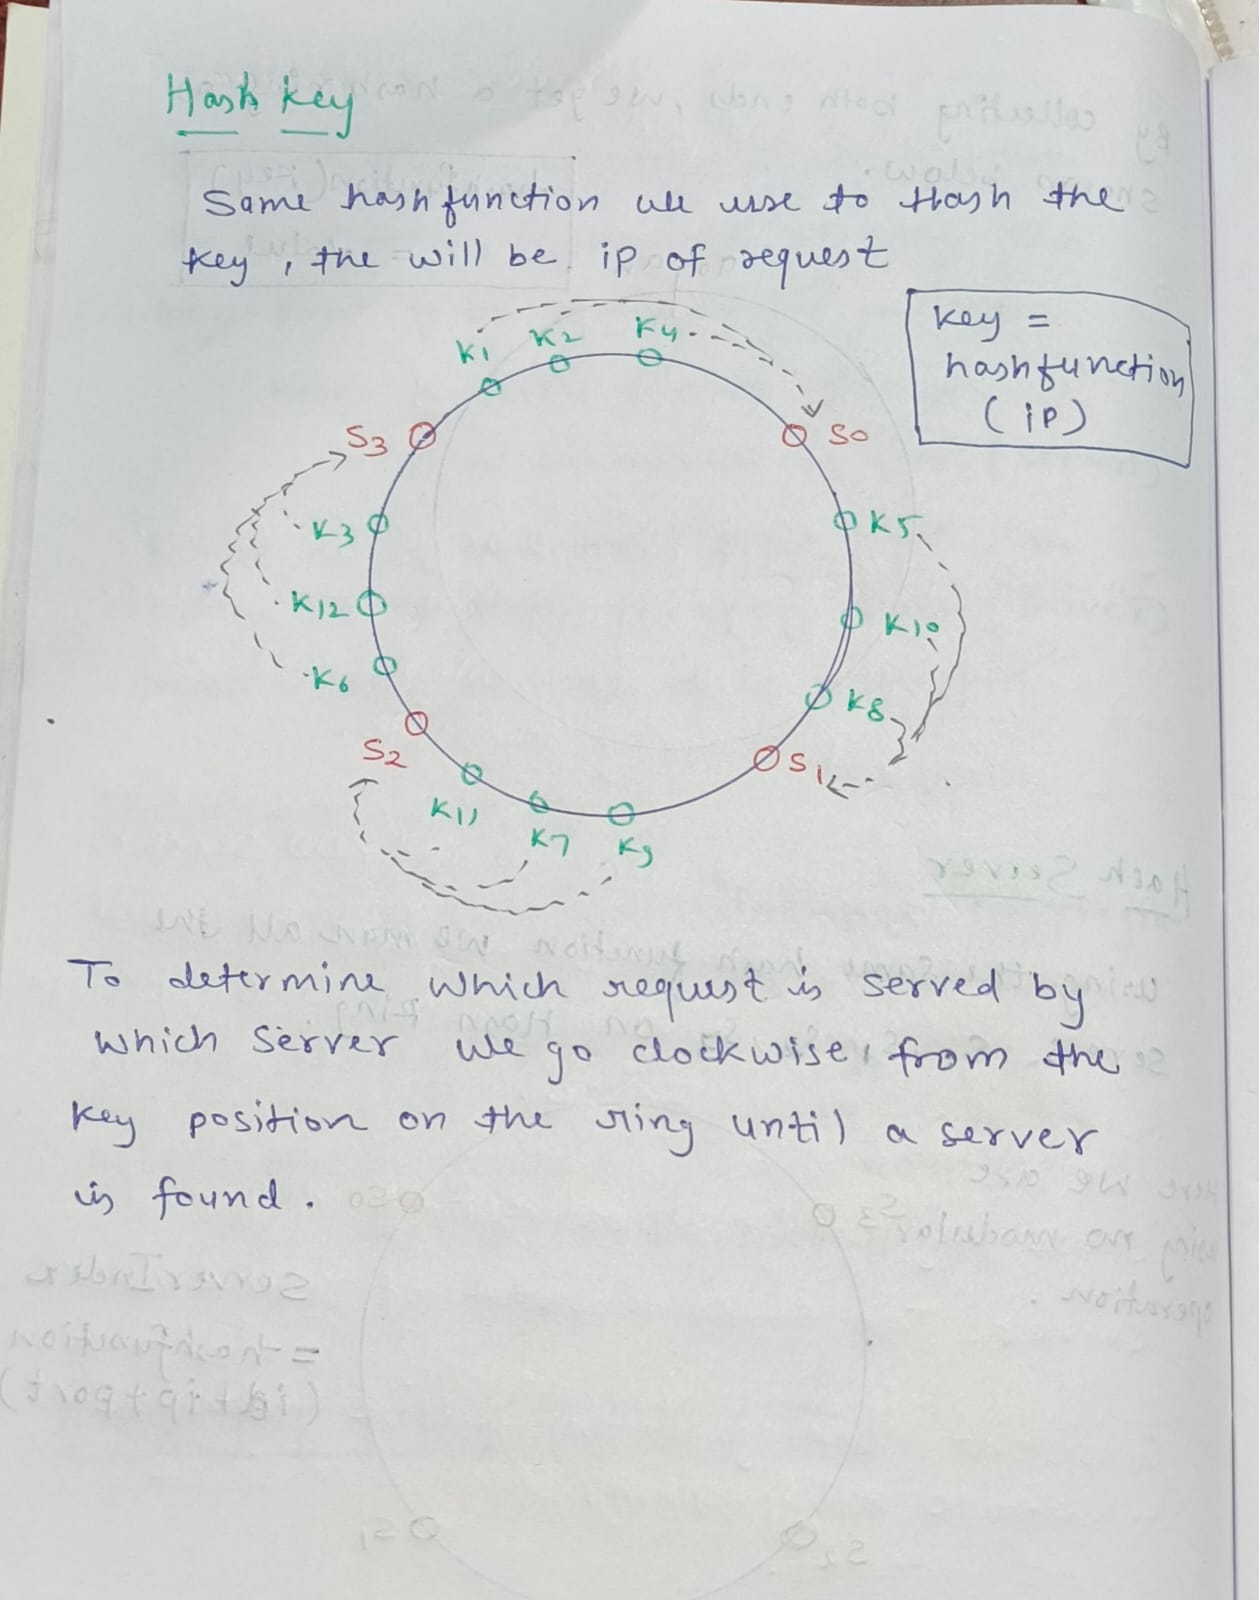 Hash Key
Same hashfunction we use to Hash the
key, the will be ip of request
key =
hashfunction
(ip)
K1 K2 K4
S3 S0
K3 K5
K12 K10
K6 K8
S2 S1
K11 K7 K9
To determine which request is served by
which server we go clockwise, from the
key position on the ring until a server
is found.